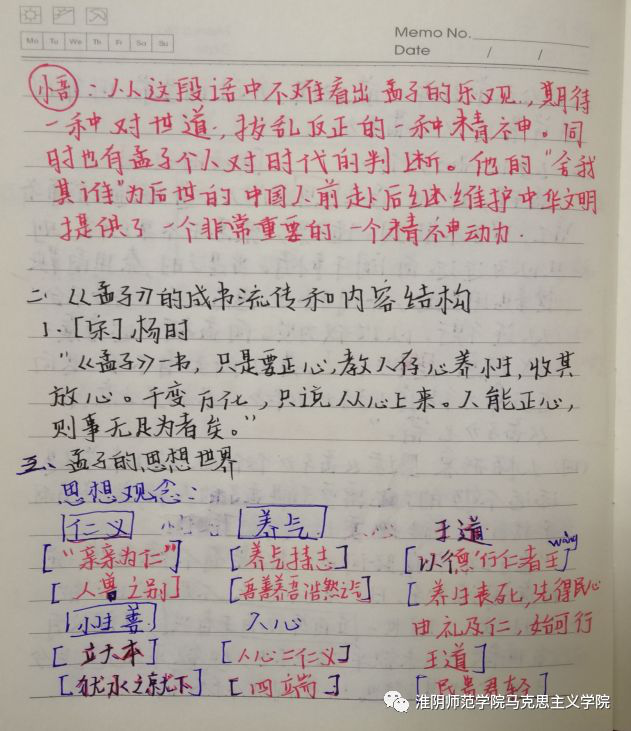 Memo No.
Mo Tu We Th Fr Sa Su
Date / /
小吾：从这段话中不难看出孟子的乐观，期待
一种对世道，拨乱反正的一种精神。同
时也有孟子个人对时代的判断。他的“舍我
其谁”为后世的中国人前赴后继维护中华文明
提供了一个非常重要的一个精神动力.
二、《孟子》的成书流传和内容结构
1.［宋］杨时
“《孟子》一书，只是要正心，教人存心养性，收其
放心。千变万化，只说从心上来。人能正心，
则事无足为者矣。”
三、孟子的思想世界
思想观念：
仁义 养气 王道
wàng
［“亲亲为仁”］ ［养气持志］ ［以德行仁者王］
［人兽之别］ ［吾善养吾浩然之气］ ［养生丧死，先得民心
性善 人心 由礼及仁，始可行
［立大本］ ［人心二仁义］ 王道］
［犹水之就下］ ［四端］ ［民贵君轻］
淮阴师范学院马克思主义学院